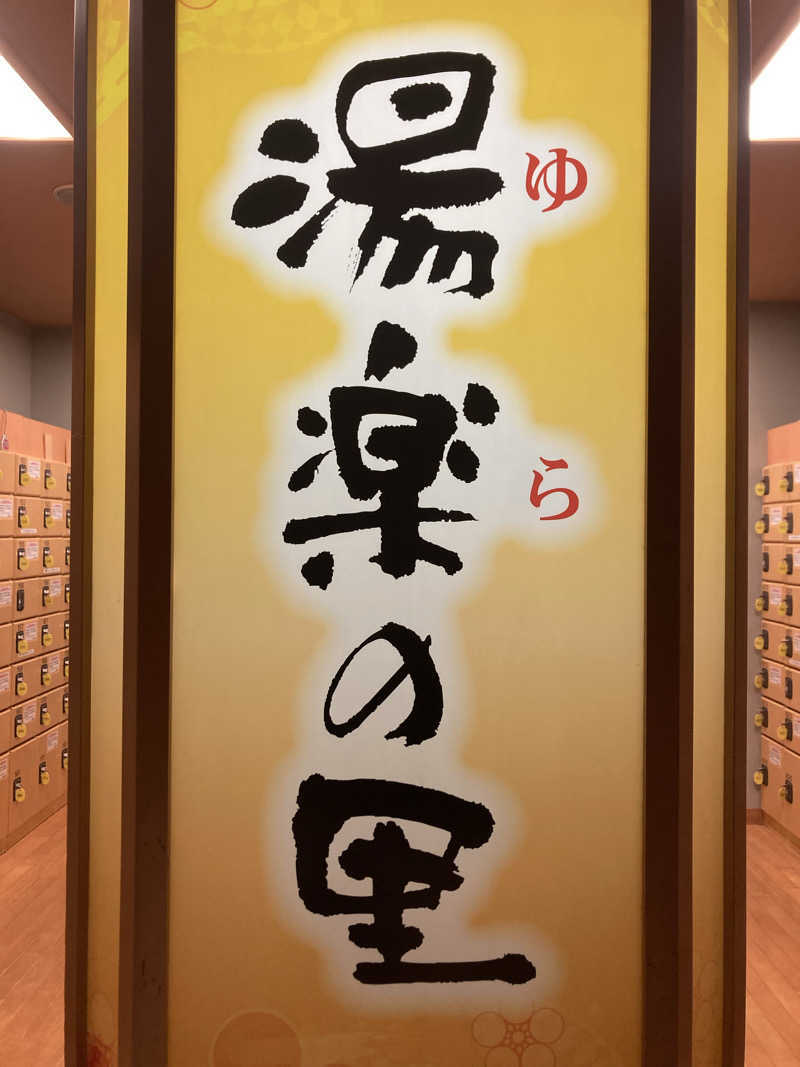 湯楽の里
ゆ
ら